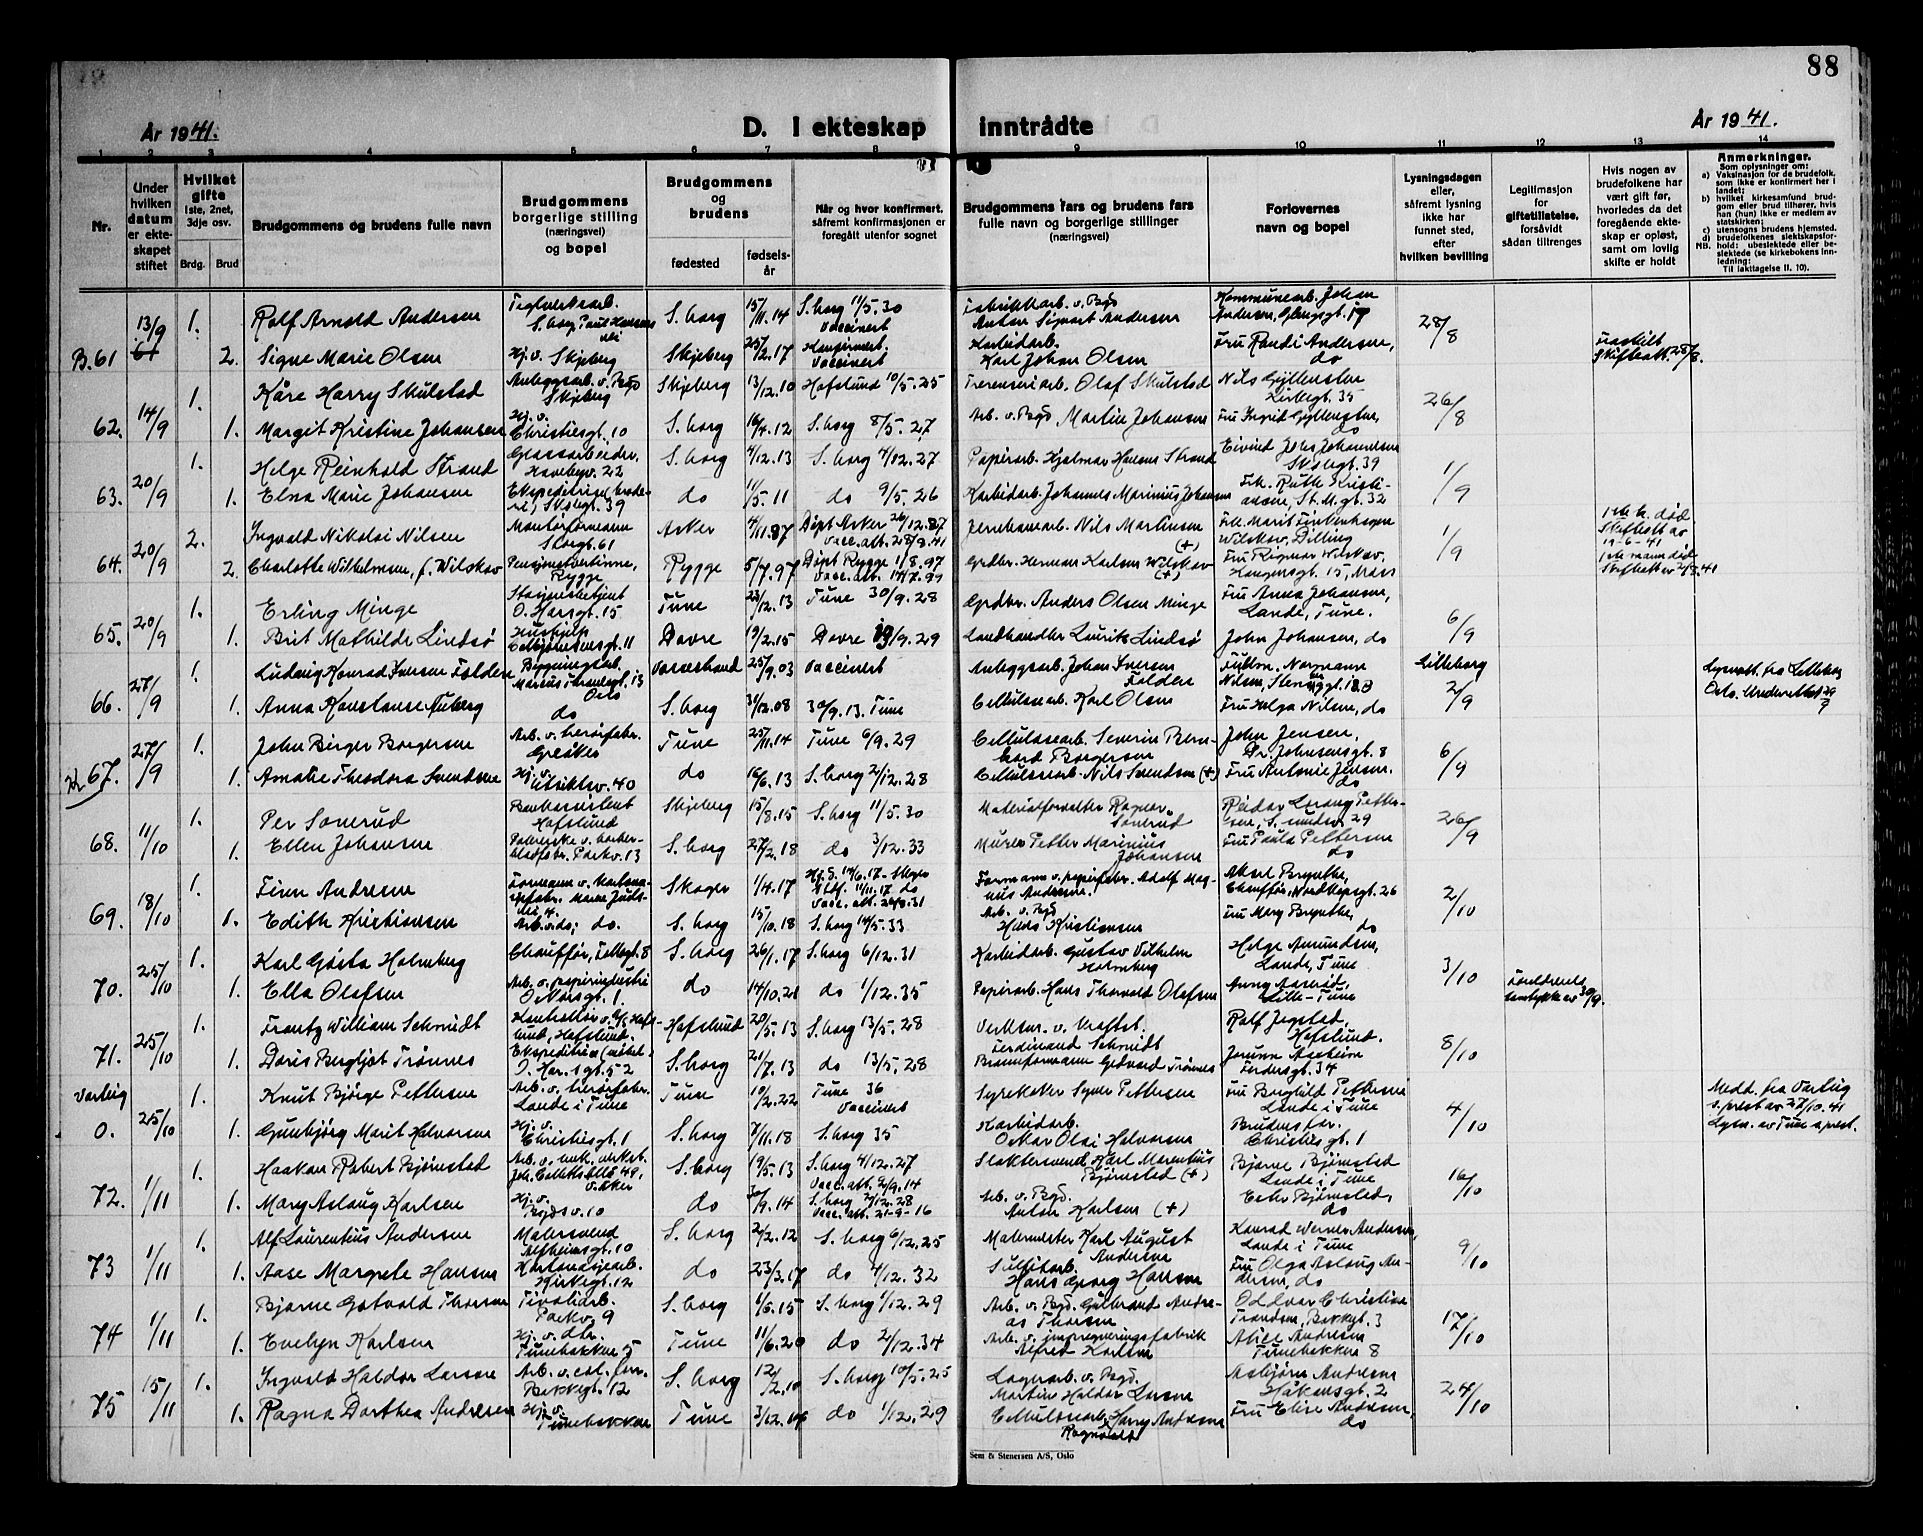 88
År 1941.
D. I ekteskap inntrådte
År 1941.
1 2 3 4 5 6 7 8 9 10 11 12 13 14
Nr.
Under hvilken datum er ekteskapet stiftet
Hvilket gifte
1ste, 2net, 3dje osv.
Brdg. Brud
Brudgommens og brudens fulle navn
Brudgommens borgerlige stilling (næringsvei) og bopel
Brudgommens og brudens
fødested
fødselsår
Når og hvor konfirmert, såfremt konfirmasjonen er foregått utenfor sognet
Brudgommens fars og brudens fars
navn og borgerlige stillinger
(næringsvei)
Forlovernes navn og bopel
Lysningsdagen eller, såfremt lysning ikke har funnet sted, efter hvilken bevilling
Legitimasjon for giftetillatelse, forsåvidt sådan tiltrenges
Hvis nogen av brudefolkene har vært gift før, hvorledes da det foregående ekteskap er opløst, samt om lovlig skifte er holdt
Anmerkninger.
Som oplysninger om:
a) Vaksinasjon for de brudefolk, som ikke er konfirmert her i landet;
b) hvilket kirkesamfund brudgom eller brud tilhører, hvis han (hun) ikke er medlem av statskirken;
c) utensogns brudens hjemsted.
d) brudefolkenes slektskapsforhold: ubeslektede eller beslektede (se kirkebokens innledning:
NB. Til iakttagelse II. 10).
B. 61 13/9 1. Rolf Arnold Andersen S. borg 15/11.14 S. borg 11/5.30 Vaccinert Anton Sigvart Andersen Kommunearb. Johan Andersen, Glengsgt. 19 28/8
2. Signe Marie Olsen Hj. v. Skjeberg Skjeberg 25/2.17 Konfirmert. Vaccinert Karbidarb. Karl Johan Olsen Fru Randi Andersen, do Fraskilt Skifteatt. 28/8.
62. 14/9 1. Kåre Harry Skulstad Anleggsarb. v. Byd Skjeberg Skjeberg 13/12.10 Hafslund 10/5.25 Olaf Skulstad Nils Gyllensten Kirkegt. 35 26/8
1. Margit Kristine Johansen Hj. v. Christiesgt. 10 S. borg 16/4.12 S. borg 8/5.27 Arb. v. Byd Martin Johansen Fru Ingrid Gyllensten, do
63. 20/9 1. Helge Reinhold Strand Glassarbeider, Havebyv. 22 S. borg 4/12.13 S. borg 4/12.27 Papirarb. Hjalmar Hansen Strand Eivind Johansen Skolegt. 39 1/9
1. Elna Marie Johansen Skolegt. 39 do 11/5.11 do 9/5.26 Karbidarb. Johannes Marinius Johansen Frk. Ruth Kristiansen, St. M. gt. 32
64. 20/9 2. Ingvald Nikolai Nilsen Montørformann Storgt. 61 Asker 4/11.87 Døpt Asker 26/12.87 Vacc. att. 28/8.41 Jernbanearb. Nils Martinsen (+) Frk. Marit Finkenhagen Wilskov, Dilling 1/9 1ste h. død Skifteatt av 19-6-41
2. Charlotte Wilhelmsen, f. Wilskov Pensjonatvertinne, Rygge Rygge 5/7.97 Døpt Rygge 1/8.97 Grdbr. Herman Karlsen Wilskov (+) Fru Ragnar Wilskov, Haugensgt. 15, Moss 1ste mann død Skifteatt av 2/9.41
65. 20/9 1. Erling Minge Stasjonsbetjent O. Haraldsgt. 15 Tune 23/12.13 Tune 30/9.28 Grdbr. Anders Olsen Minge Fru Anna Johansen, Lande, Tune. 6/9
1. Brit Mathilde Lindsø Hushjelp Dovre 19/2.15 Dovre 19/9.29 Landhandler Laurits Lindsø John Johansen, do
66. 27/9 1. Ludvig Konrad Iversen Folden Bygningsarb. Marcus Thranesgt. 13 Oslo 25/9.03 Vaccinert Anleggsarb. Johan Iversen Folden Nilsen, 18 B Lilleborg 2/9 Lysn.att. fra Lilleborg Oslo. Underrettet 29/9
1. Anna Konstanse Tuberg do S. borg 31/12.08 30/9.13. Tune Cellulosearb. Karl Olsen Fru Helga Nilsen, do
67. 27/9 1. John Birger Borgersen Greåker Tune 25/11.14 Tune 6/9.29 Cellulosearb. Severin Bernhard Borgersen John Jensen, Johnsensgt. 8 6/9
1. Amalie Theodora Svendsen Hj. v. Utsiktsv. 40 do 16/6.13 S. borg 2/12.28 Cellulosearb. Nils Svendsen (+) Fru Antonie Jensen. do
68. 11/10 1. Per Sonerud Bankassistent Hafslund Skjeberg 15/8.15 S. borg 11/5.30 Materialforvalter Ragnar Sonerud Reidar Lorang Pettersen, 29 26/9
1. Ellen Johansen Parkv. 13 S. borg 27/2.18 do 3/12.33 Murer Petter Marinius Johansen Fru Paula Pettersen do
69. 18/10 1. Finn Andresen Skoger 1/4.17 Vacc. att. Formann v. papirfabr. Adolf Magnus Andresen. Aksel Brynthe, Chauffør, Nordkapsgt. 26 2/10
1. Edith Kristiansen Arb. v. do; do. S. borg 15/10.18 S. borg 14/5.33 Arb. v. Byd Hilda Kristiansen Fru Mary Brynthe, do
70. 25/10 1. Karl Gösta Holmberg Chauffør, Feltegt. 8 S. borg 26/1.17 S. borg 6/12.31 Karbidarb. Gustav Vilhelm Holmberg Helge Amundsen, Lande, Tune 3/10
1. Ella Olafsen Arb. v. papirindustri O. Narsgt. 1. do 14/10.21 do 1/12.35 Papirarb. Hans Thorvald Olafsen Lille-Tune Foreldrenes samtykke av 30/9.
71. 25/10 1. Frantz William Schmidt Kontrollør v. A/S Hafslund, Hafslund. Hafslund 20/5.13 S. borg 13/5.28 Ferdinand Schmidt Rolf Jegstad, Hafslund. 8/10
1. Doris Bergljot Trønnes S. borg 21/7.13 do 13/5.28 Gedvard Trønnes Jorunn Aseheim 34
Varteig 0. 25/10 1. Knut Bjørge Pettersen Lande i Tune Tune 10/2.22 Tune 36 Vaccinert Syrekoker Syver Pettersen Fru Borghild Pettersen Lande i Tune 4/10 Medt. fra Varteig s.prest av 27/10.41 Lysn. av Tune s.prest.
1. Gunbjörg Marit Halvorsen Hj. v. Christiesgt. 1 S. borg 7/11.18 S. borg 35 Karbidarb. Oskar Olai Halvorsen Brudens far. Christiesgt. 1
72. 1/11 1. Haakon Robert Bjørnstad Arb. v. mek. verkst. S. borg 19/5.13 S. borg 4/12.27 Slaktersvend Karl Marentius Bjørnstad (+) Bjarne Bjørnstad Lande i Tune 16/10
1. Mary Aslaug Karlsen Hj. v. 10 do 30/9.14 S. borg 2/12.28 Vacc. att. 21-9-16 Arb. v. Byd. Anton Karlsen (+) Ester Bjørnstad, do
73 1/11 1. Alf Laurentius Andersen Malersvend Alfheimsgt. 10 S. borg 2/2.12 S. borg 6/12.25 Malermester Karl August Andersen Konrad Werner Andersen, Lande i Tune 9/10
1. Aase Margrete Hansen Kartonasjearb. Kirkegt. 12 do 23/3.17 do 4/12.32 Sulfitarb. Hans Georg Hansen Fru Olga Aslaug Andersen, do
74 1/11 1. Bjarne Gotvald Thorsen Tivoliarb. Parkv. 9 S. borg 1/6.15 S. borg 1/12.29 Arb. v. Byd. Gulbrand Andreas Thorsen Oddvar Christian Frandsen, Bakkegt. 3 17/10
1. Evelyn Karlsen Hj. v. do. Tunebakken 5 Tune 11/6.20 do 2/12.34 Arb. v. impregneringsfabrik Alfred Karlsen Alice Andresen Tunebakken 8
75 15/11 1. Ingvald Haldor Larsen Bakkegt. 12 S. borg 12/2.10 S. borg 10/5.25 Lagerarb. v. Byd. Martin Haldor Larsen Asbjørn Andresen Håkonsgt. 2 24/10
1. Ragna Dorthea Andresen Hj. v. Tunebakken Tune 3/12.14 do 1/12.29 Cellulosearb. Harry Ragnvald Andresen Fru Elise Andresen, do
Sem & Stenersen A/S, Oslo